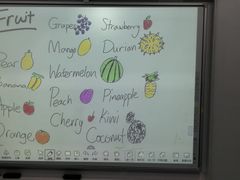 Fruit
Grapes Strawberry
Pear Mango Durian
Banana Watermelon
Apple Peach Pineapple
Cherry Kiwi
Orange Coconut